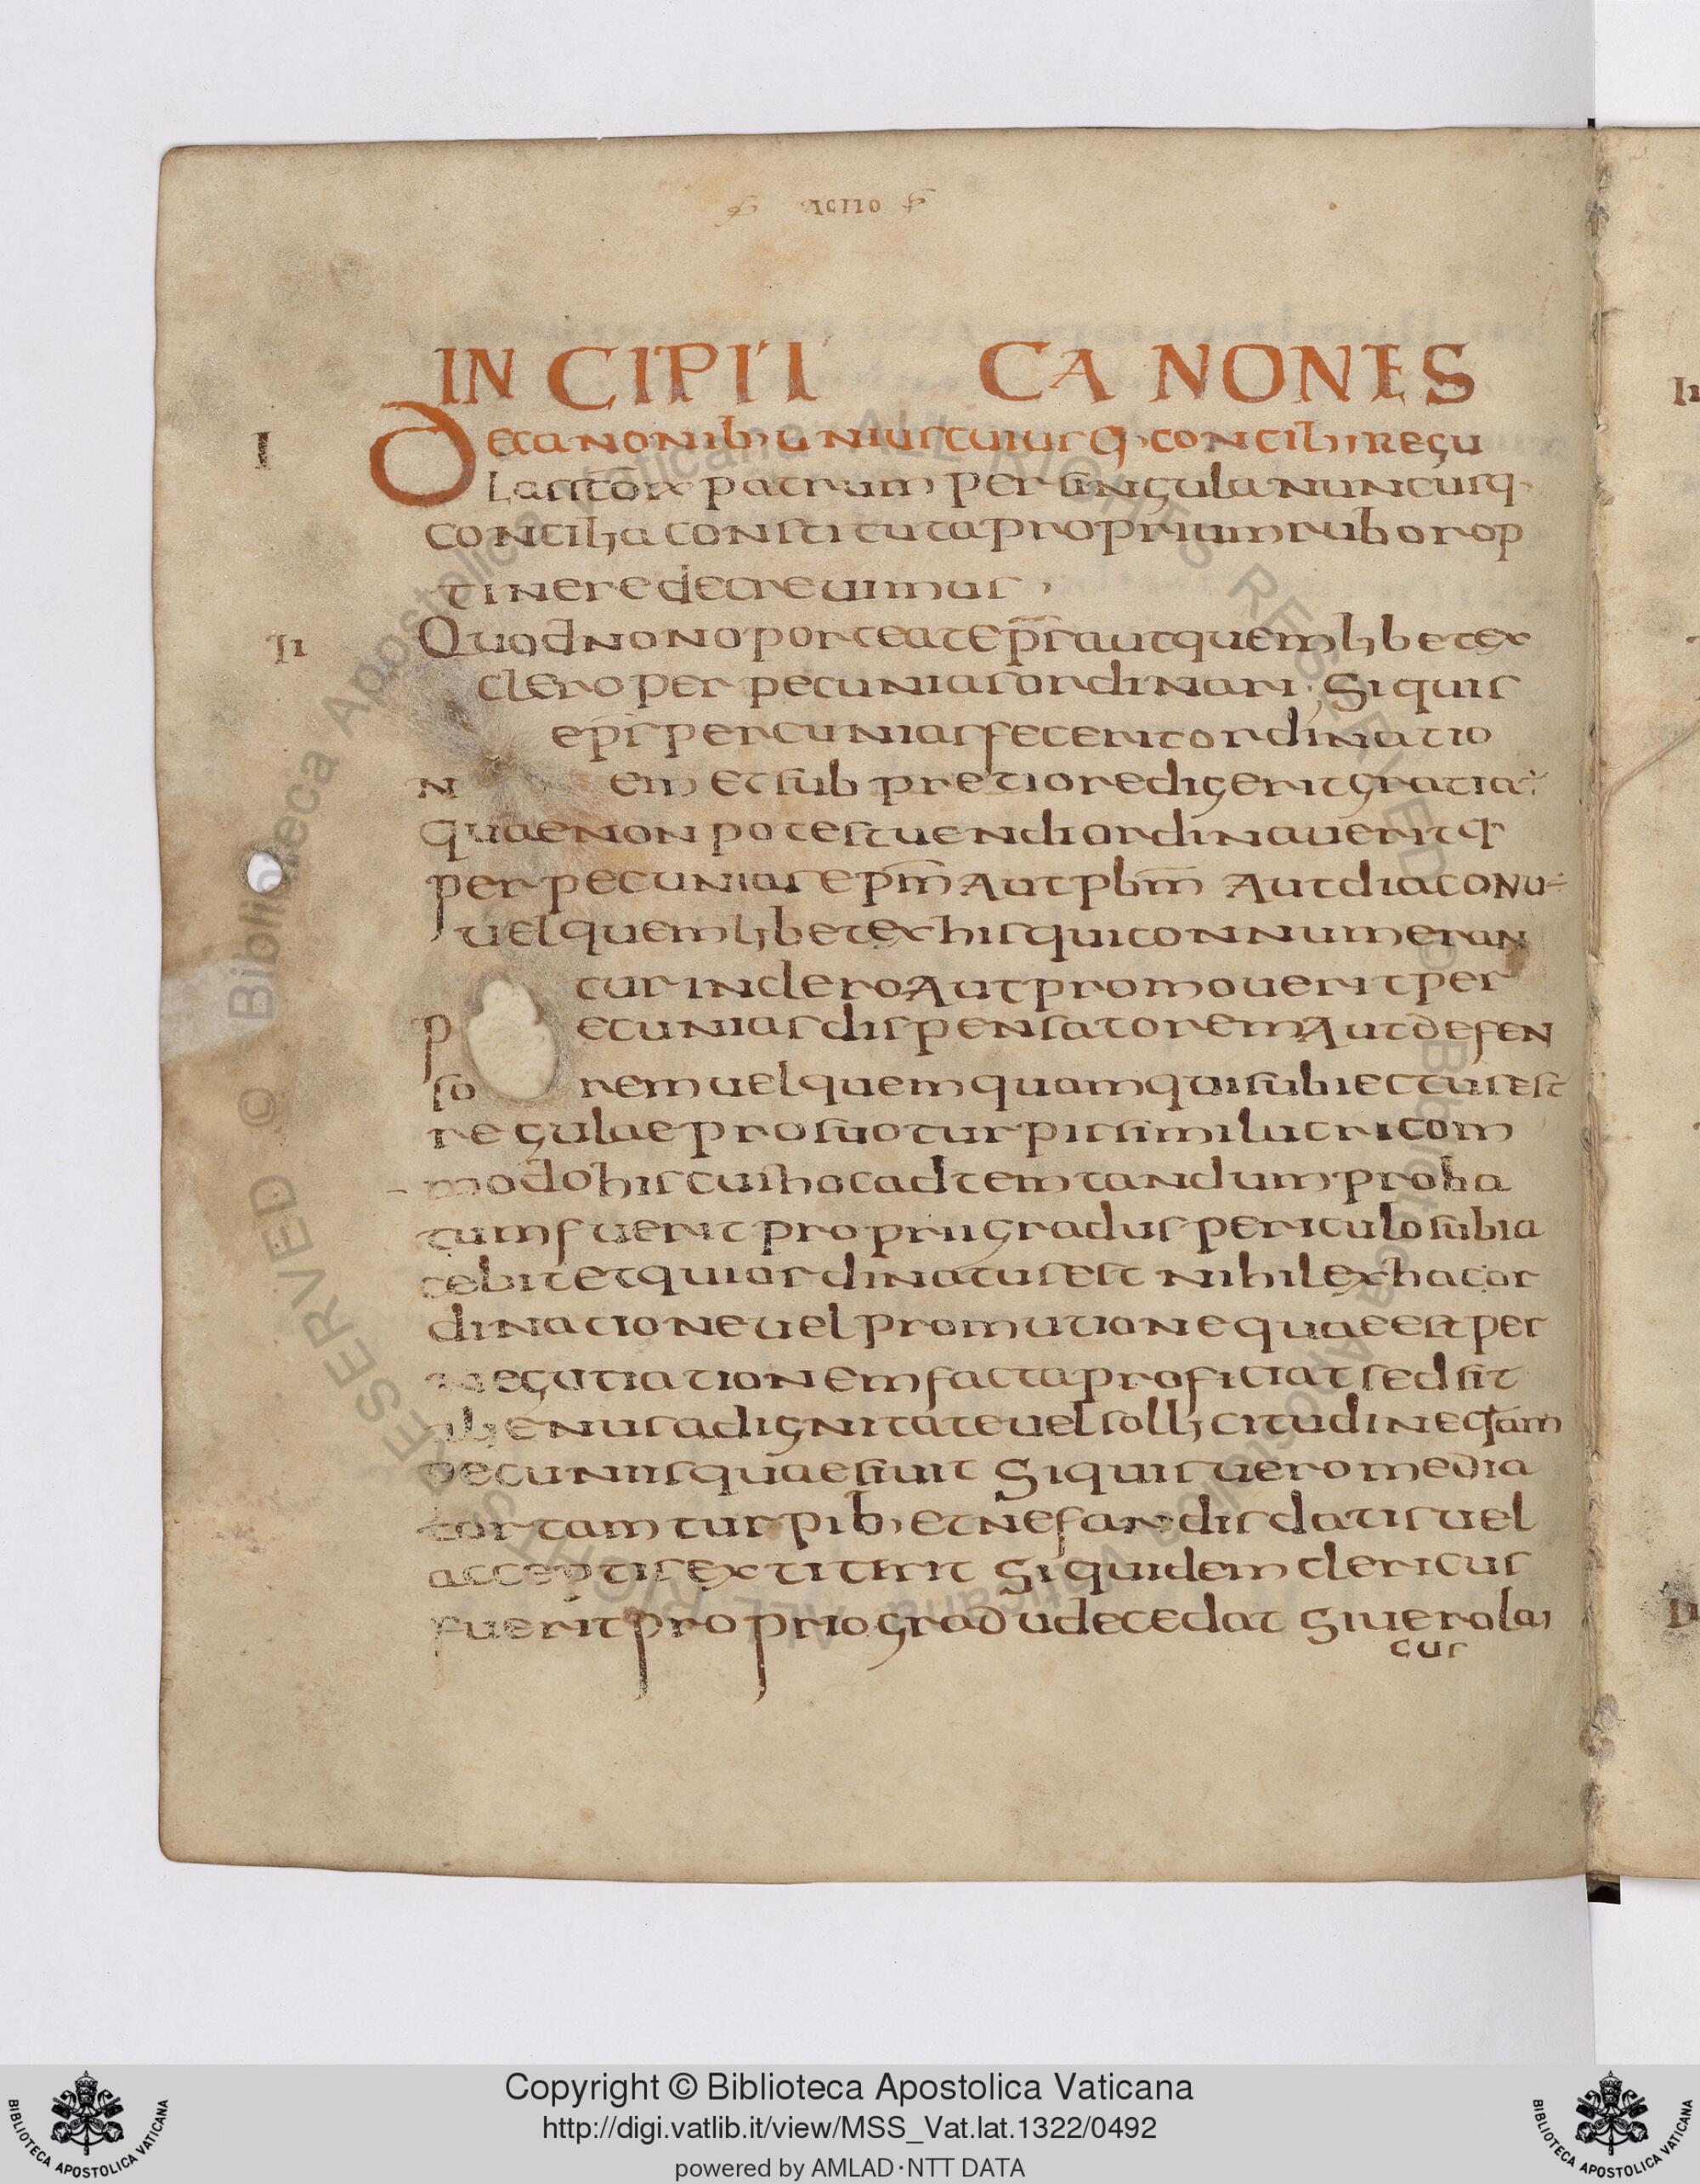 ACTIO
INCIPIT CANONES
I De canonib; uniuscuiusq; concilii regu
las scōrx patrum per singula nuncusq;
concilia constituta proprium rubor op
tinere decreuimus
II Quod non oporteat ep̄s aut quemlibet ex
clero per pecunias ordinari; Si quis
ep̄s percunias fecerit ordinatio
n em et sub pretio redigerit gratia
quae non potest uendi ordinauerit q
per pecunias ep̄m Aut pb̄m Aut diaconu
uel quemlibet ex his qui connumeran
tur in clero Aut promouerit per
p ecunias dispensatorem Aut defen
so rem uel quemquam qui subiectus est
regulae pro suo turpissimi lucri com
modo his cuis hoc adtemtandum proba
tum fuerit proprii gradus periculo subia
cebit et qui ordinatus est nihil ex hac or
dinatione uel promutione quae est per
negutiationem facta proficiat sed sit
alienus a dignitate uel sollicitudine q̄am
pecuniis quaesiuit Si quis uero media
tor tam turpib; et nefandis datis uel
acceptis extiterit Si quidem clericus
fuerit proprio gradu decedat Si uero lai
cus
Copyright © Biblioteca Apostolica Vaticana
http://digi.vatlib.it/view/MSS_Vat.lat.1322/0492
powered by AMLAD·NTT DATA
BIBLIOTECA APOSTOLICA VATICANA
BIBLIOTECA APOSTOLICA VATICANA